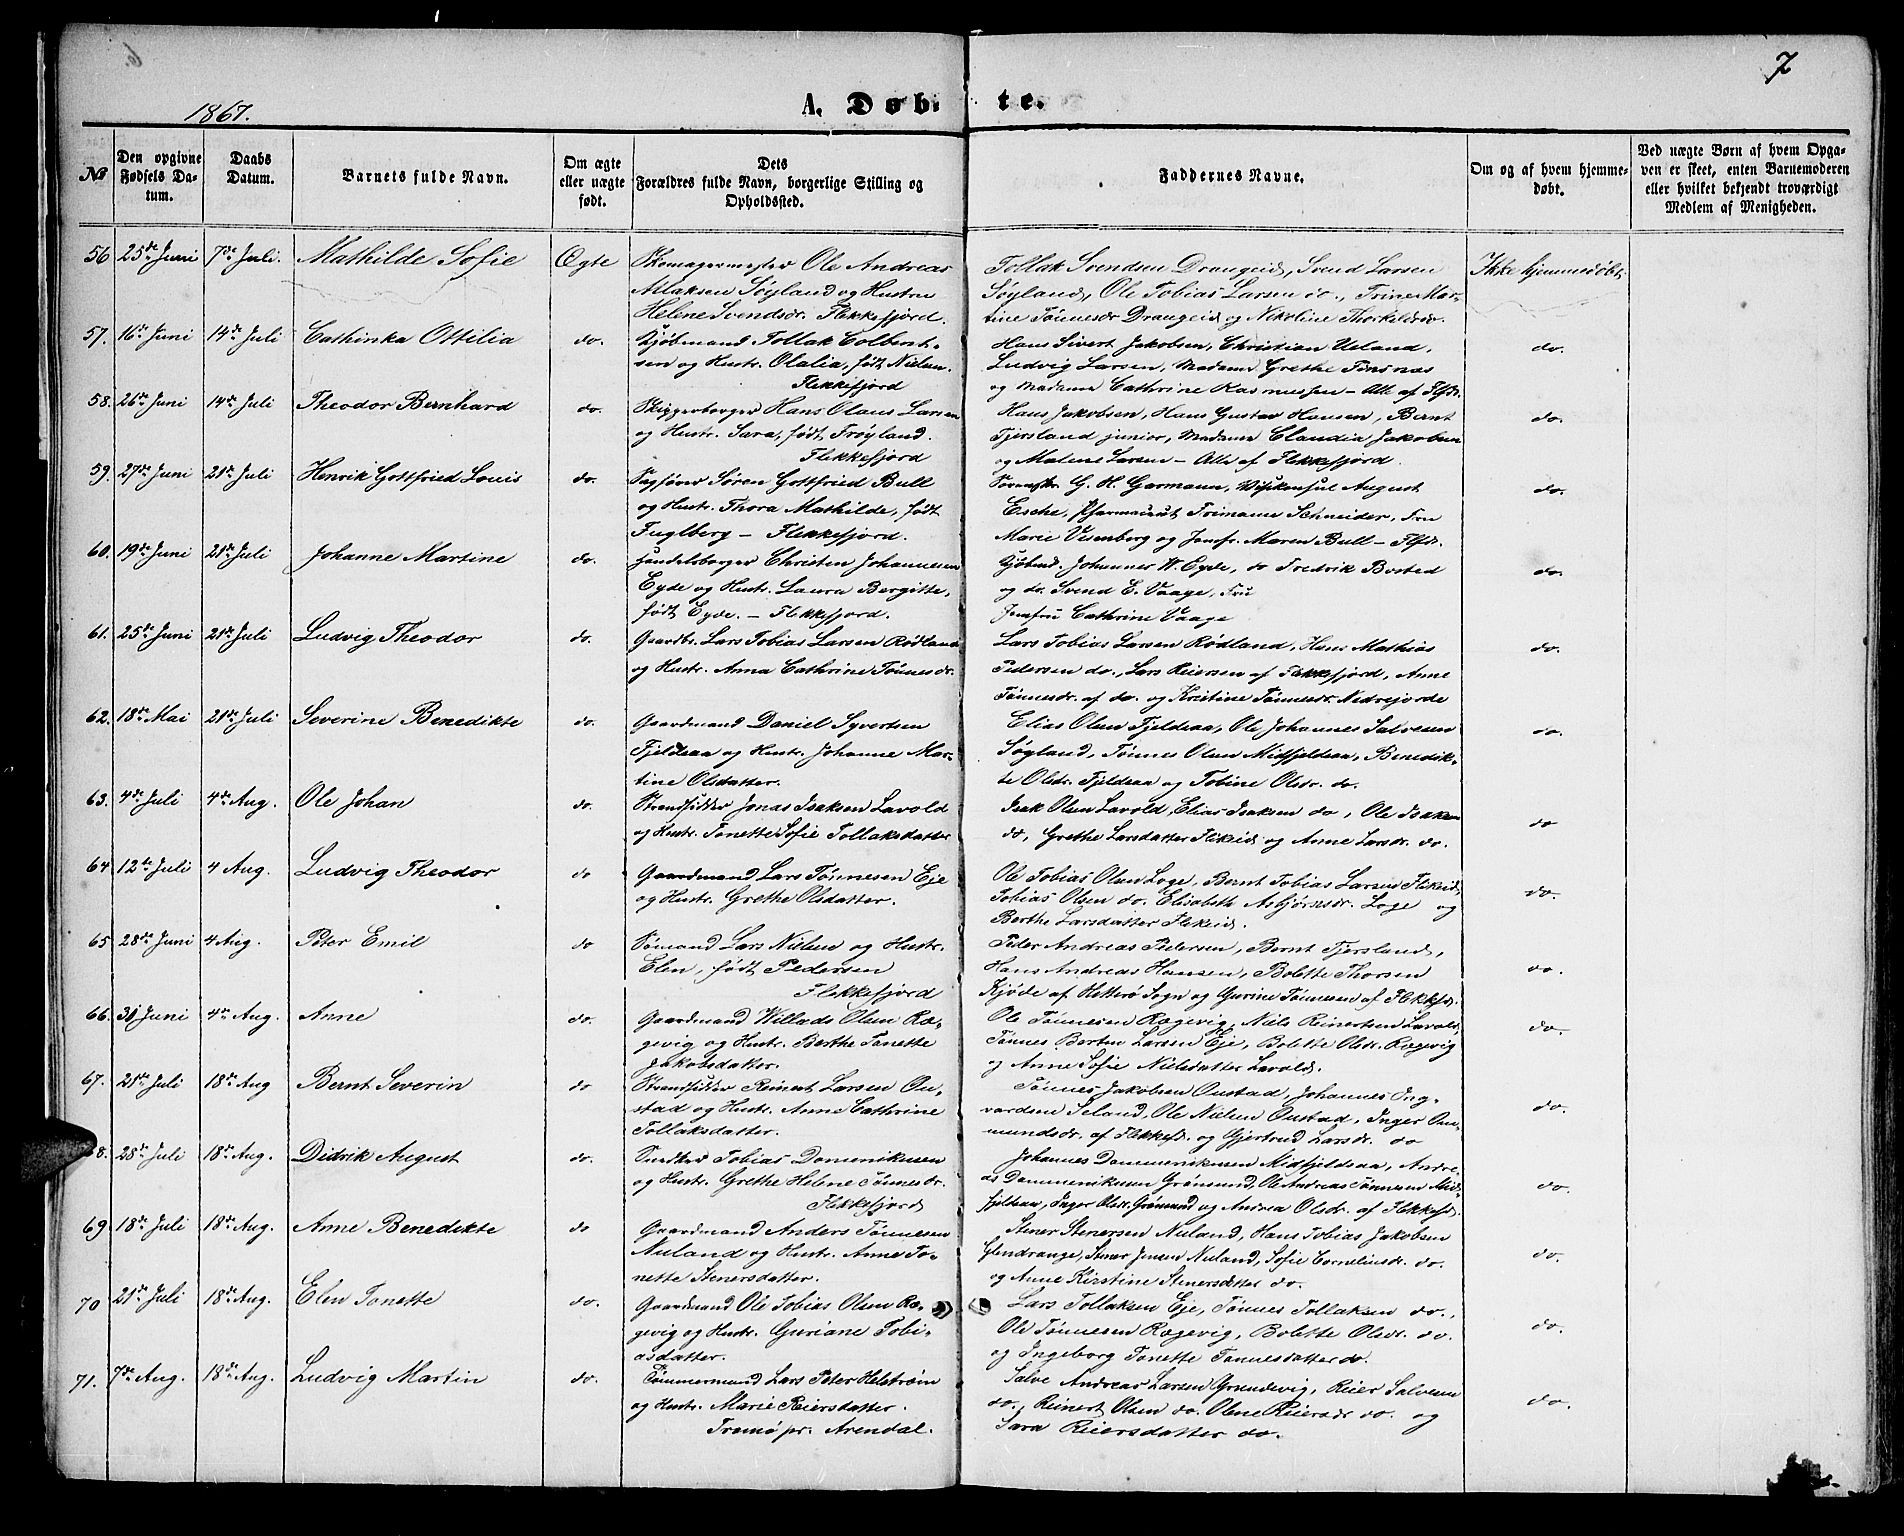 7
1867.
A. Døb- te.
No
Den opgivne Fødsels Datum.
Daabs Datum.
Barnets fulde Navn.
Om ægte eller uægte født.
Dets Forældres fulde Navn, borgerlige Stilling og Opholdssted.
Faddernes Navne.
Om og af hvem hjemmedøbt.
Ved uægte Børn af hvem Opgaven er skeet, enten Barnemoderen eller hvilket bekjendt troværdigt Medlem af Menigheden.
56 25de Juni 7de Juli. Mathilde Sofie Ægte
Skomagermester Ole Andreas
Aslaksen Søyland og Hustru
Helene Svendsdr. Flekkefjord.
Tollak Svendsen Drangeid, Svend Larsen
Søyland, Ole Tobias Larsen do., Trine Mar-
tine Tønnesdr Drangeid og Nikoline Thorkildsdr.
Ikke hjemmedøbt
57. 16de Juni 14de Juli Cathinka Ottilia do.
Kjøbmand Tollak Colbent-
sen og Hustr. Olalia, født Nielsen.
Flekkefjord
Hans Sivert Jakobsen, Christian Ueland,
Ludvig Larsen, Madame Grethe Tinsnæs
og Madame Cathrine Rasmussen – Alle af Flfd.
do.
58. 26de Juni 14de Juli Theodor Bernhard do.
Skipperborger Hans Olaus Larsen
og Hustr. Sara, født Frøyland.
Flekkefjord
Hans Jakobsen, Hans Gustav Hansen, Bernt
Tjersland junior, Madame Claudia Jakobsen
og Malene Larsen – Alle af Flekkefjord.
do.
59. 27de Juni 21de Juli Henrik Gottfried Louis do.
Sagfører Søren Gottfried Bull
og Hustr. Thora Mathilde, født
Fuglberg – Flekkefjord.
G. H. Garmann, Visekonsul August
Esche, Pharmaceut Trimann Schneider, Fru
Marie Vesenberg og Jomfr. Maren Bull – Flfd.
do.
60. 19de Juni 21de Juli Johanne Martine do.
Handelsborger Christen Johannesen
Eyde og Hustr. Laura Bergitte,
født Eyde. – Flekkefjord.
Kjøbmd. Johannes W. Eyde, do Fredrik Busted
og do. Svend E. Vaage, Fru
Jomfru Cathrine Vaage
do.
61. 25de Juni 21de Juli Ludvig Theodor do.
Gaardbr. Lars Tobias Larsen Rødland
og Hustr. Anna Cathrine Tønnesdr.
Lars Tobias Larsen Rødland, Hans Mathias
Pedersen do., Lars Reiersen af Flekkefjord, Anne
Tønnesdr. af do. og Kristine Tønnesdr. Nedrejorde
do.
62. 18de Mai 21de Juli Severine Benedikte do.
Gaardmand Daniel Syvertsen
Fjeldsaa og Hustr. Johanne Mar-
tine Olsdatter.
Elias Olsen Fjeldsaa, Ole Johannes Salvesen
Søyland, Tønnes Olsen Midfjeldsaa, Benedik-
te Olsdr. Fjeldsaa og Tobine Olsdr. do.
do.
63. 4de Juli 4de Aug. Ole Johan do.
Strandsidder Jonas Isaksen Lavold
og Hustr. Tonette Sofie Tollaksdatter
Isak Olsen Lavold, Elias Isaksen do, Ole Isaksen
do, Grethe Larsdatter Flikeid og Anne Larsdr. do.
do
64 12te Juli 4 Aug. Ludvig Theodor do
Gaardmand Lars Tønnesen Eje
og Hustr. Grethe Olsdatter.
Ole Tobias Olsen Loge, Bernt Tobias Larsen Flikeid,
Tobias Olsen do. Elisabeth Asbjørnsdr. Loge og
Berthe Larsdatter Flikeid.
do.
65 28de Juni 4 Aug. Peter Emil do
Sømand Lars Nielsen og Hustr.
Elen, født Pedersen
Flekkefjord
Peder Andreas Pedersen, Bernt Tjersland,
Hans Andreas Hansen, Bolette Thorsen
Kjøde af Hitterø Sogn og Gurine Tønnesen af Flekkefd.
do.
66. 30 Juni 4de Aug. Anne do.
Gaardmand Willads Olsen Ræ-
gevig og Hustr. Berthe Tonette
Jakobsdatter.
Ole Tønnesen Rægevig, Niels Reinertsen Lavold,
Tønnes Berten Larsen Eje, Bolette Olsdr. Rægevig
og Anne Sofie Nielsdatter Lavold.
do.
67. 21de Juli 18de Aug Bernt Severin do
Strandsidder Reinert Larsen Ou-
stad og Hustr. Anne Cathrine
Tollaksdatter.
Tønnes Jakobsen Oustad, Johannes Ing-
vardsen Seland, Ole Nielsen Oustad, Inger Om-
mundsdr. af Flekkefd. og Gjertrud Larsdr. do
do.
68. 28de Juli 18de Aug. Didrik August do.
Snedker Tobias Dommenikusen
og Hustr. Grethe Helene Tønnesdr.
Flekkefjord
Johannes Dommenikusen Midfjeldsaa, Andre-
as Dommenikusen Grønsund, Ole Andreas Tønnesen Mid-
fjeldsaa, Inger Olsdr. Grønsund og Andrea Olsdr. af Flekkefd.
do.
69. 18de Juli 18de Aug. Anne Benedikte do
Gaardmand Anders Tønnesen
Nuland og Hustr. Anne To-
nette Stenersdatter.
Stener Stenersen Nuland, Hans Tobias Jakobsen
Glendrange, Stener Jensen Nuland, Sofie Corneliusdr. do.
og Anne Kirstine Stenersdatter do.
do.
70 21de Juli 18de Aug. Elen Tonette do.
Gaardmand Ole Tobias Olsen Ræ-
gevig og Hustr. Guriane Tobi-
asdatter.
Lars Tollaksen Eje, Tønnes Tollaksen do.,
Ole Tønnesen Rægevig, Bolette Olsdr. do.
og Ingeborg Tonette Tønnesdatter do.
do.
71. 7de Aug. 18de Aug. Ludvig Martin do.
Tømmermand Lars Peter Helstrøm
og Hustr. Marie Reiersdatter.
Tromø pr. Arendal.
Salve Andreas Larsen Grundevig, Reier Salvesen
do., Reinert Olsen do. Olene Reiersdr do. og
Sara Reiersdatter do.
do.